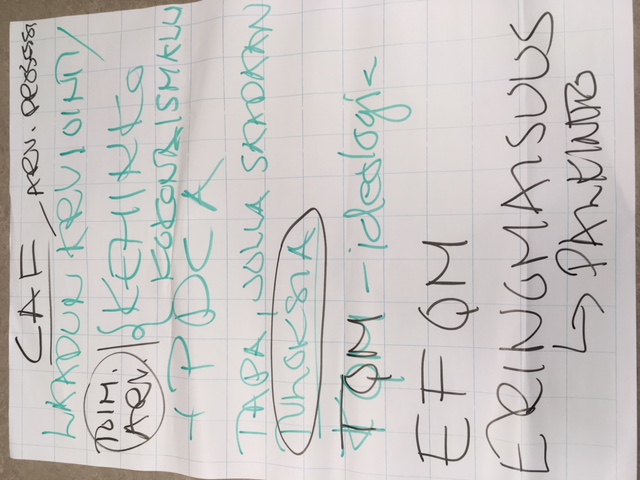 CAF - ARV. PROSESSI
LAADUN ARVIOINTI/
TOIM. ARV. KEHITTO
KOKONAISMALLI
+ PDCA
TAPA, JOLLA SAADAAN
TULOKSIA
TQM - ideologia
EFQM
ERINOMAISUUS
↳ PALKINTO